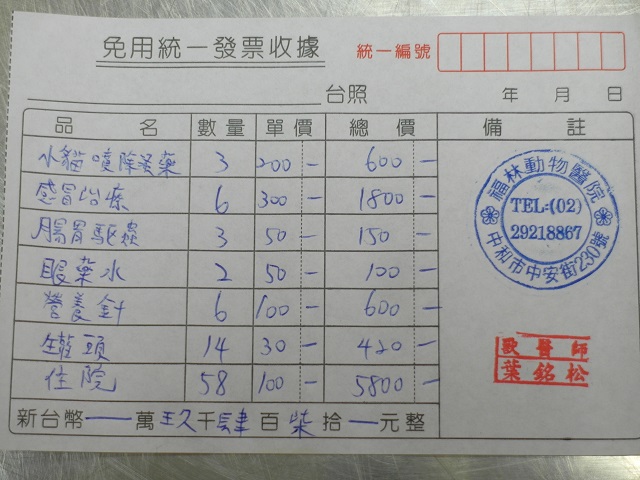 免用統一發票收據
統一編號
台照 年 月 日
品名 數量 單價 總價 備註
小貓噴除蚤藥 3 200— 600—
感冒治療 6 300— 1800—
腸胃驅蟲 3 50— 150—
眼藥水 2 50— 100—
營養針 6 100— 600—
罐頭 14 30— 420—
住院 58 100— 5800—
新台幣—萬玖千肆百柒拾—元整
福林動物醫院
TEL:(02)
29218867
中和市中安街230號
獸醫師
葉銘松